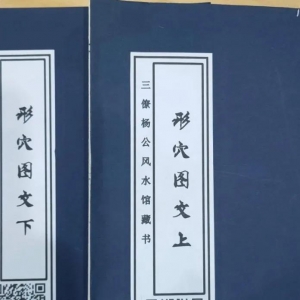 形穴图文下
三僚杨公风水馆藏书
形穴图文上